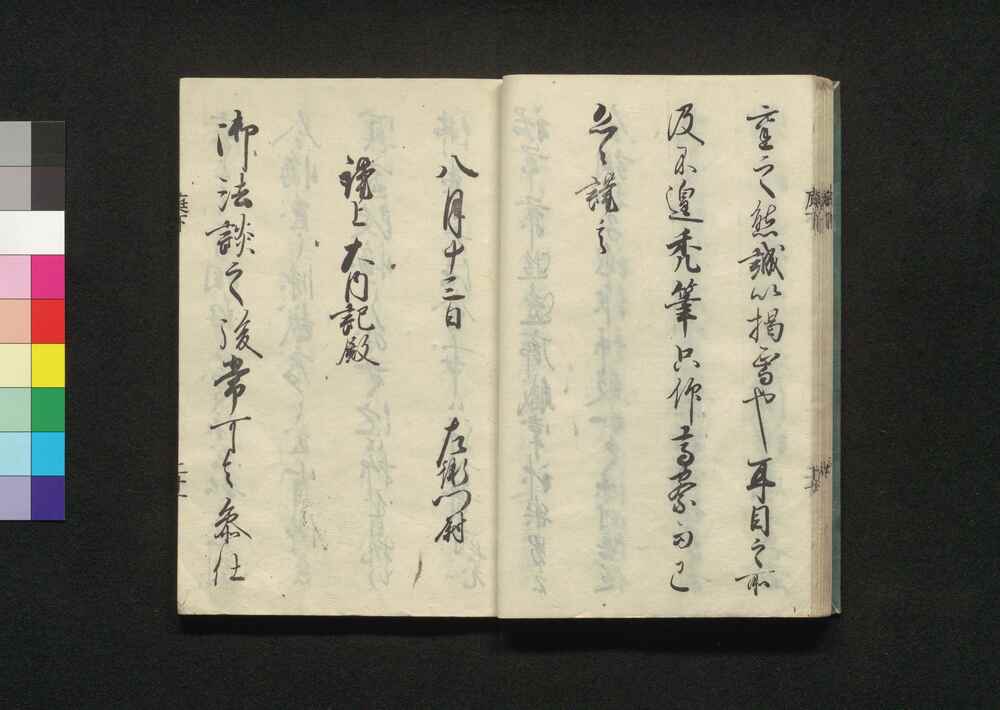 之態誠以掲焉也耳目之所
及不遑禿筆只仰高察而已
恐々謹言
八月十三日 左衛門尉
謹上大内記殿
御法談之後常可令参仕